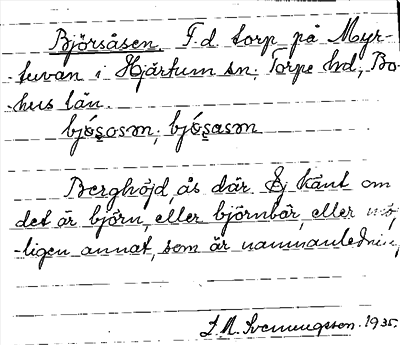 Björsåsen. F.d. torp på Myr-
tuvan i Hjärtum sn. Torpe hd, Bo-
hus län.
bjǿs̥osm, bjǿs̥asm
Berghöjd, ås där. Ej känt om
det är björn, eller björnbär, eller mö
-ligen annat, som är namnanlednin
1935.